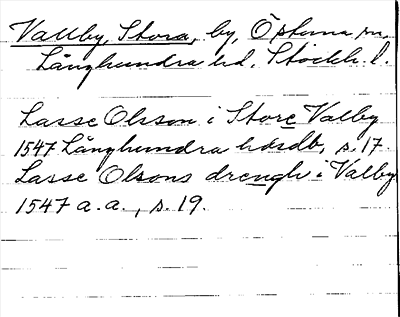 Vallby, Stora, by, Östuna sn,
Långhundra hd, Stockh. l.
Lasse Olsson i Store Valby
1547 Långhundra hdsdb, s. 17.
Lasse Olsons drengh i Valby
1547 a. a., s. 19.